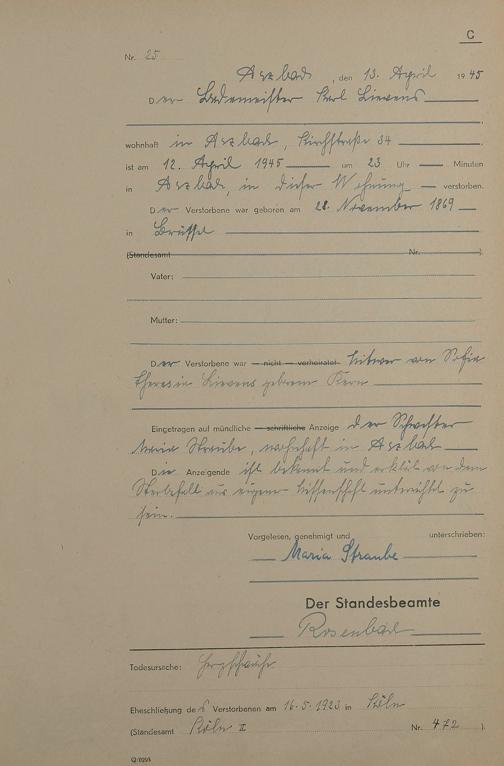 C
Nr. 25
Asbach, den 13. April 1945
Der Bademeister Karl Lievens
wohnhaft in Asbach, Kirchstraße 34
ist am 12. April 1945 um 23 Uhr — Minuten
in Asbach, in dieser Wohnung verstorben.
Der Verstorbene war geboren am 28. November 1869
in Brüssel
(Standesamt Nr. )
Vater:
Mutter:
Der Verstorbene war nicht verheiratet Witwer von Sofia
Theresia Lievens geborene Kern
Eingetragen auf mündliche schriftliche Anzeige der Schwester
Maria Straube, wohnhaft in Asbach
Die Anzeigende ist bekannt und erklärt von dem
Sterbefall aus eigener Wissenschaft unterrichtet zu
sein.
Vorgelesen, genehmigt und unterschrieben:
Maria Straube
Der Standesbeamte
Rosenbach
Todesursache: Herzschwäche
Eheschließung des Verstorbenen am 16.5.1923 in Köln
(Standesamt Köln II Nr. 472 )